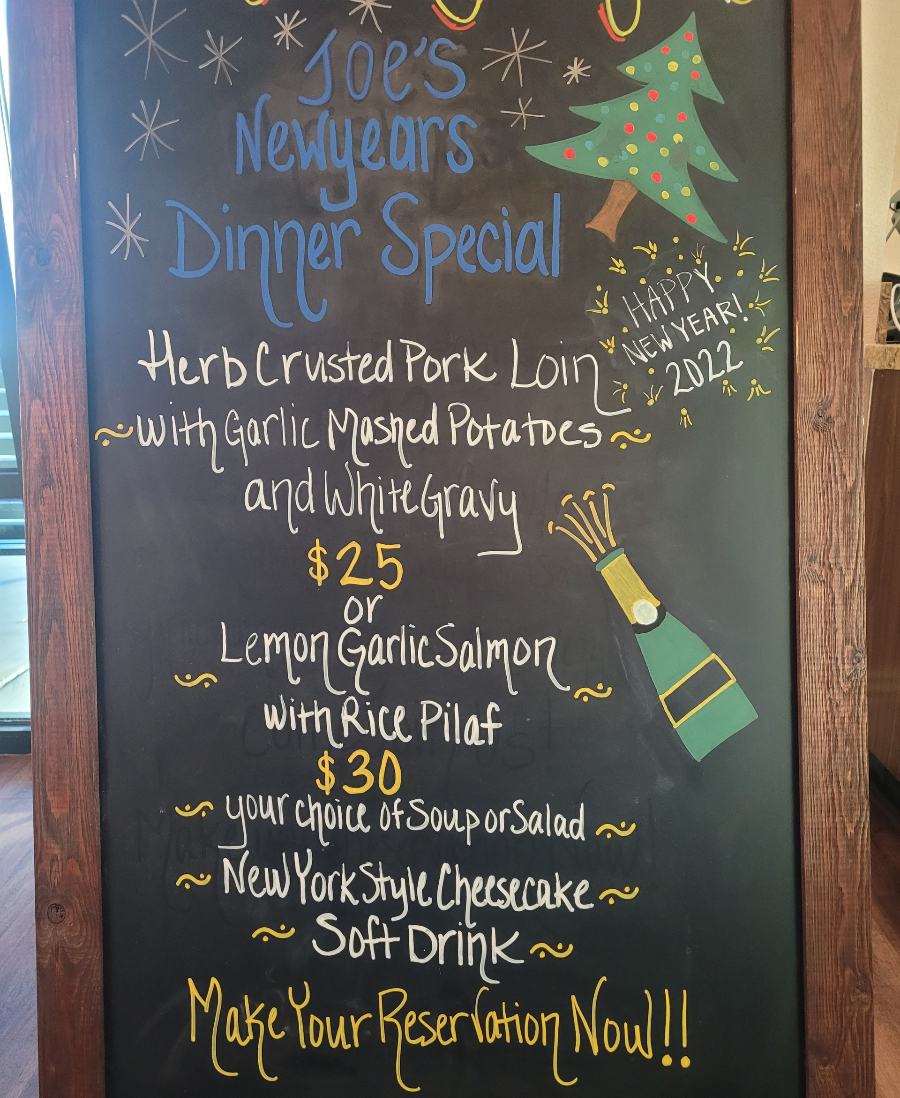 Joe's
Newyears
Dinner Special
HAPPY
NEW YEAR!
2022
Herb Crusted Pork Loin
with Garlic Mashed Potatoes
and White Gravy
$25
or
Lemon Garlic Salmon
with Rice Pilaf
$30
your choice of Soup or Salad
New York Style Cheesecake
Soft Drink
Make Your Reservation Now!!